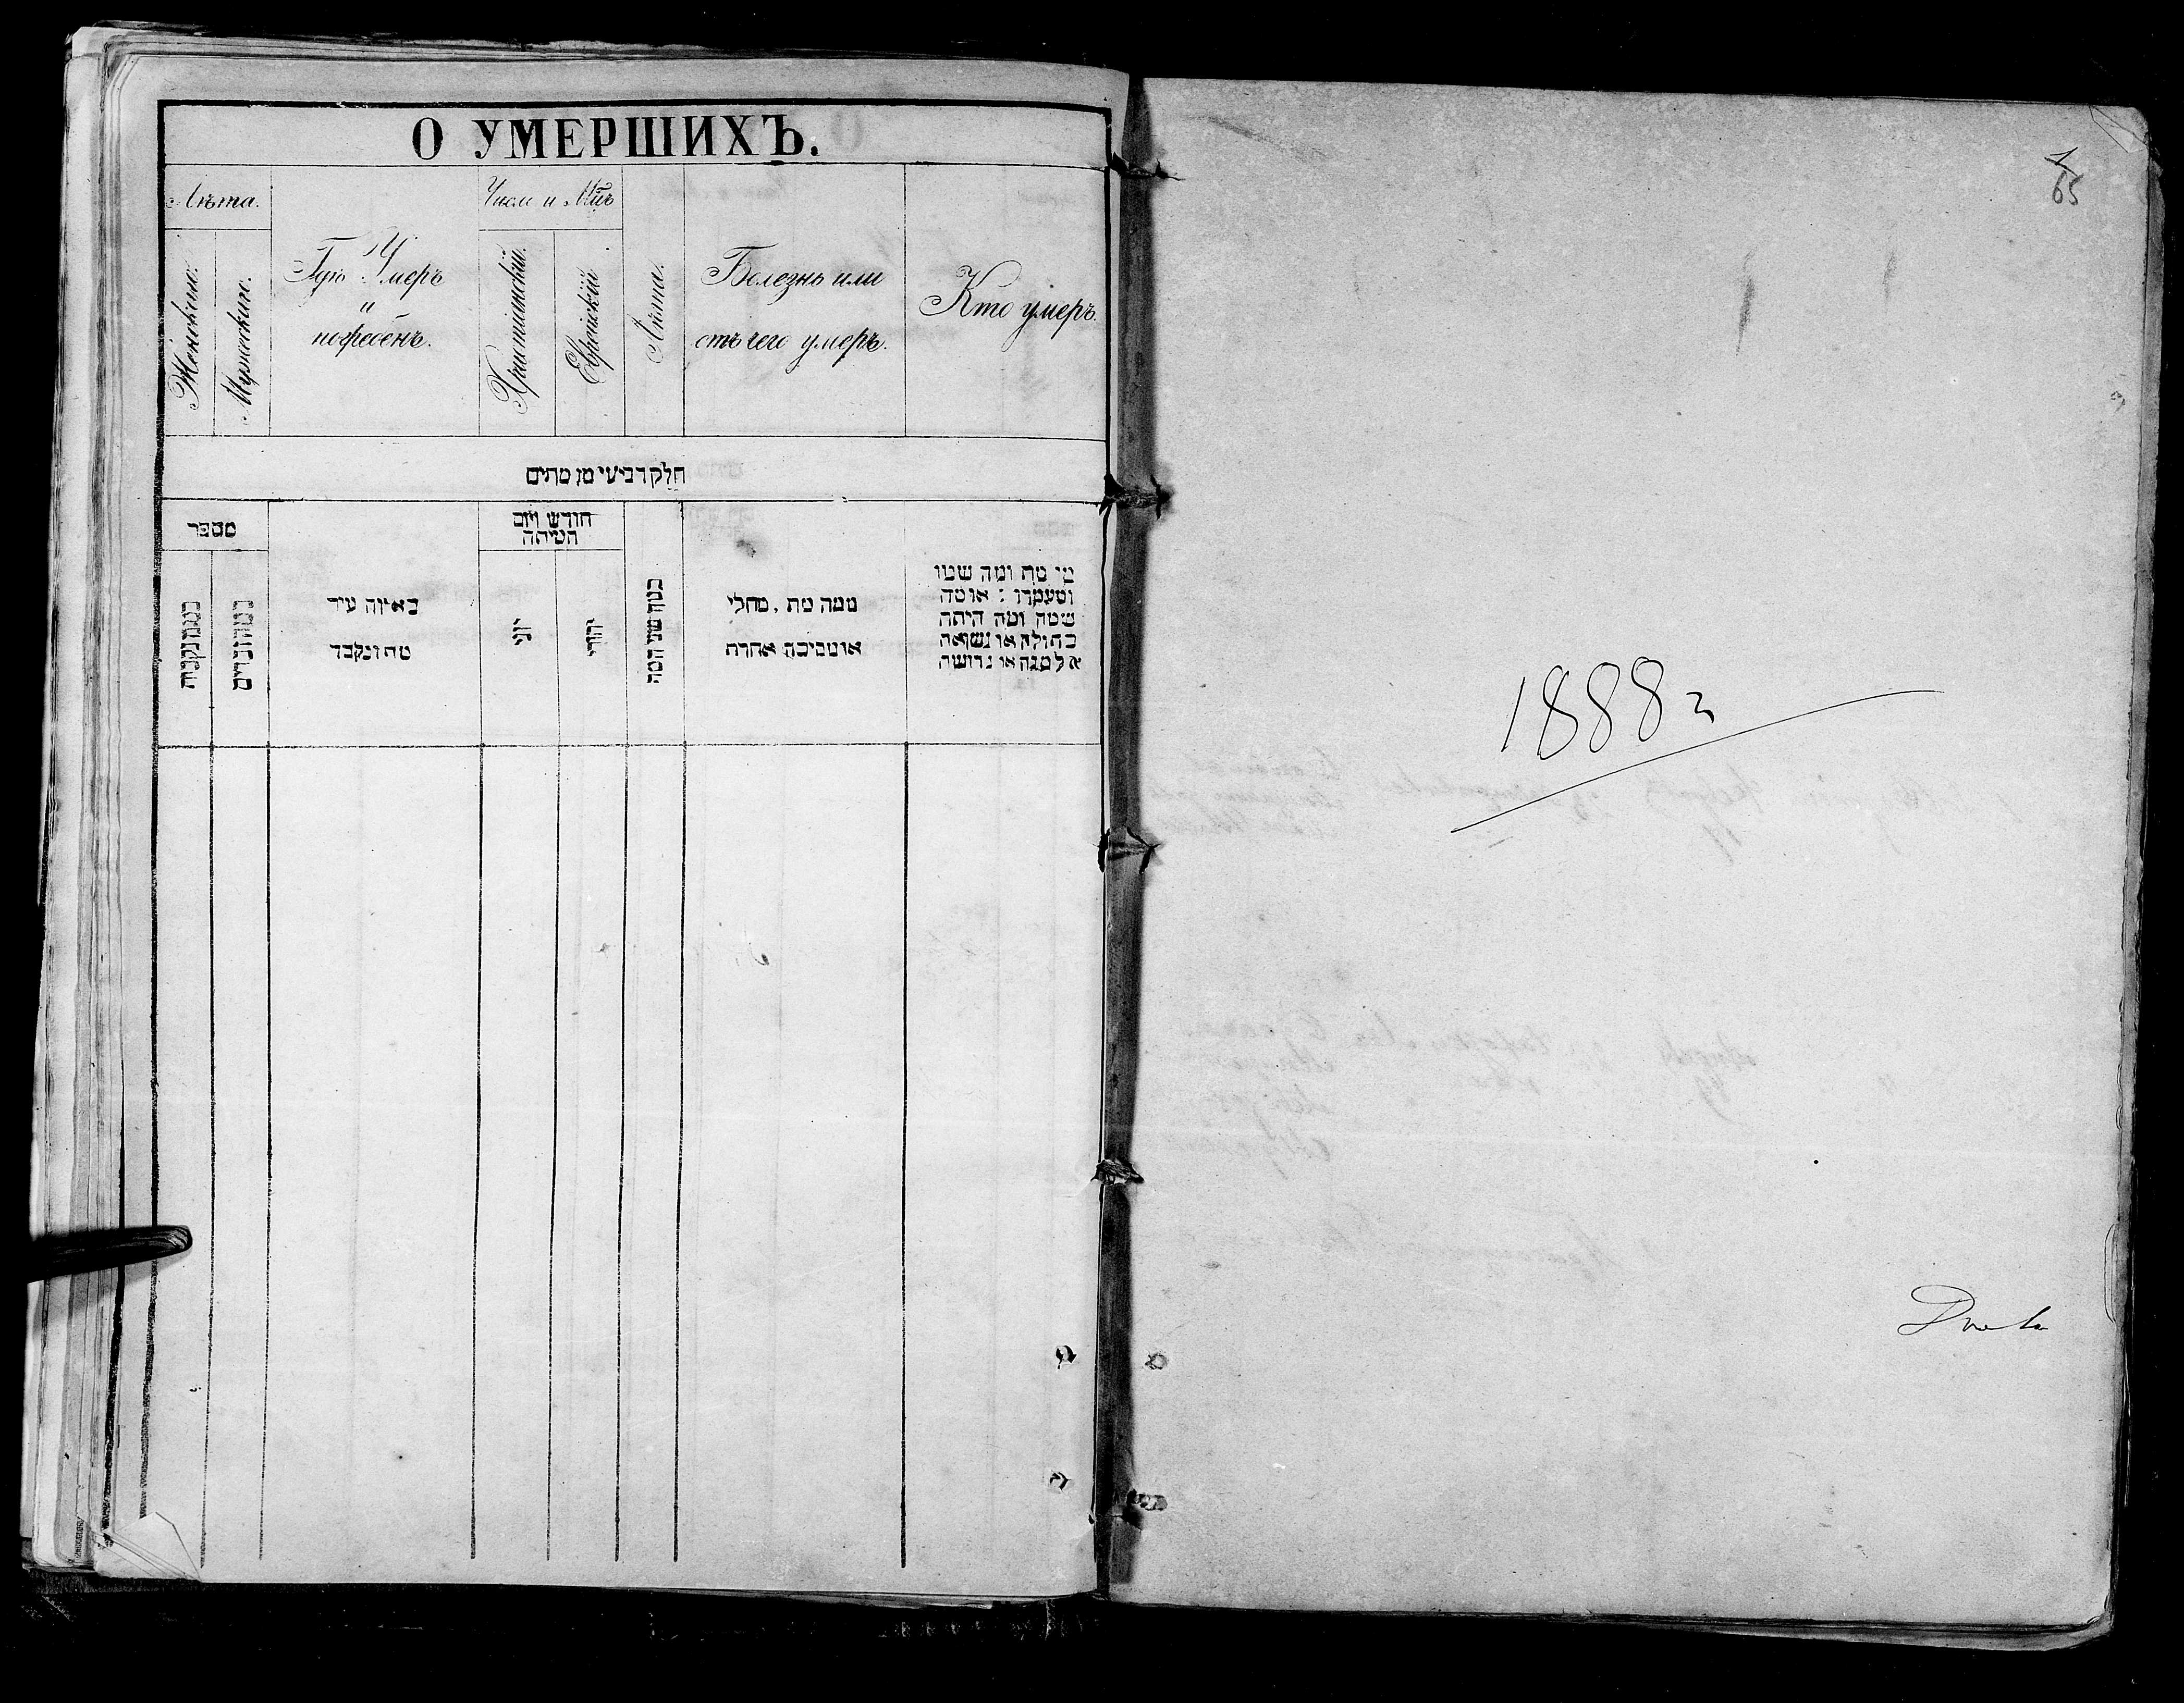 О УМЕРШИХЪ.
Лѣта.
Женскаго.
Мужескаго.
Гдѣ Умеръ
и
погребёнъ.
Число и Мц̃ъ
Христіянскій.
Еврейскій
Лѣта.
Болезнь или
отъ чего умеръ.
Кто умеръ.
חלק רביעי מן מתים
מספר
במנין נקבות
במנין זכרים
באיזה עיר
מת ונקבר
חודש ויום
המיתה
יוני
יהודי
כמה שני המת
ממה מת, מחלי
או מסיבה אחרת
מי מת ומה שמו
ומעמדו : או מה
שמה ומה היתה
בתולה או נשואה
אלמנה או גרושה
1
65
1888 г